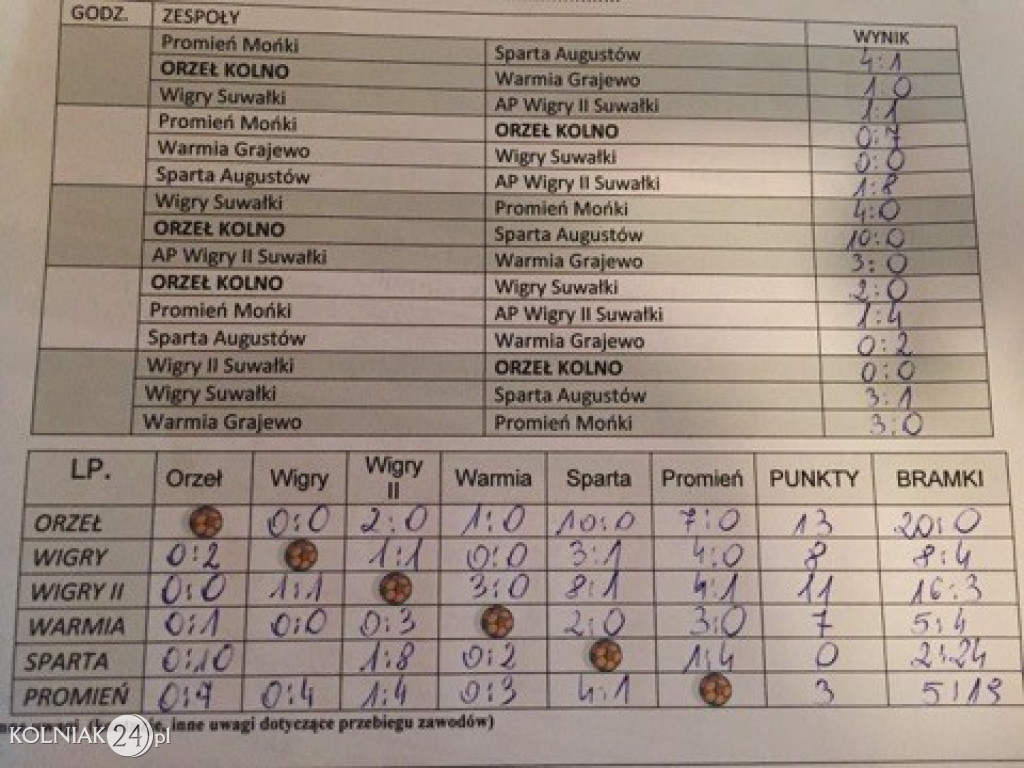 GODZ. ZESPOŁY WYNIK
Promień Mońki Sparta Augustów 4:1
ORZEŁ KOLNO Warmia Grajewo 1:0
Wigry Suwałki AP Wigry II Suwałki 1:1
Promień Mońki ORZEŁ KOLNO 0:7
Warmia Grajewo Wigry Suwałki 0:0
Sparta Augustów AP Wigry II Suwałki 1:8
Wigry Suwałki Promień Mońki 4:0
ORZEŁ KOLNO Sparta Augustów 10:0
AP Wigry II Suwałki Warmia Grajewo 3:0
ORZEŁ KOLNO Wigry Suwałki 2:0
Promień Mońki AP Wigry II Suwałki 1:4
Sparta Augustów Warmia Grajewo 0:2
Wigry II Suwałki ORZEŁ KOLNO 0:0
Wigry Suwałki Sparta Augustów 3:1
Warmia Grajewo Promień Mońki 3:0
LP. Orzeł Wigry Wigry II Warmia Sparta Promień PUNKTY BRAMKI
ORZEŁ 0:0 2:0 1:0 10:0 7:0 13 20:0
WIGRY 0:2 1:1 0:0 3:1 4:0 8 8:4
WIGRY II 0:0 1:1 3:0 8:1 4:1 11 16:3
WARMIA 0:1 0:0 0:3 2:0 3:0 7 5:4
SPARTA 0:10 1:8 0:2 1:4 0 2:24
PROMIEŃ 0:7 0:4 1:4 0:3 4:1 3 5:19
uwagi, inne uwagi dotyczące przebiegu zawodów)
KOLNIAK24.pl